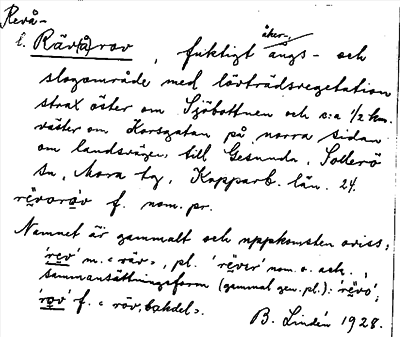 Revå-
l. Räv(å)rov, fuktigt åker-, ängs- och
slogområde med lövträdsvegetation
strax öster om Sjöbottnen och c:a 1/2 km.
väster om Korsgatan på norra sidan
om landsvägen till Gesunda, Sollerö
sn, Mora tg, Kopparb. län. 24.
rëvoròv f. nom. pr.
Namnet är gammalt och uppkomsten oviss;
'rev' m. «räv», pl. 'rëver' nom. o. ack.,
sammansättningsform (gammal gen. pl.): 'rëvo';
'rov' f. «röv, bakdel».
B. Lindén 1928.